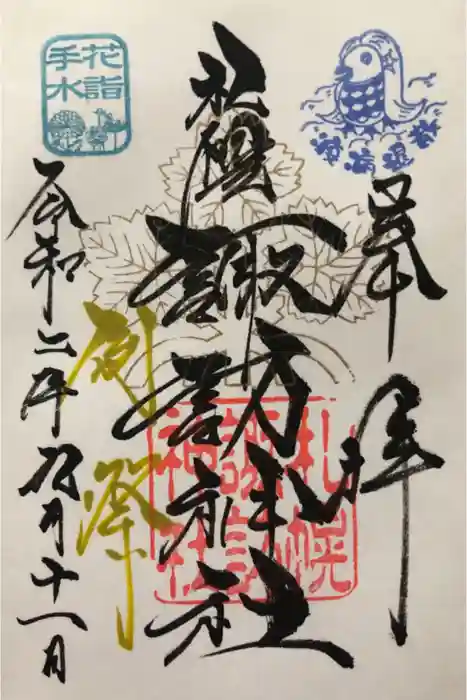 奉拝
札幌
諏訪神社
例祭
令和二年九月十一日
花詣
手水
疫病退散
札幌
諏訪
神社